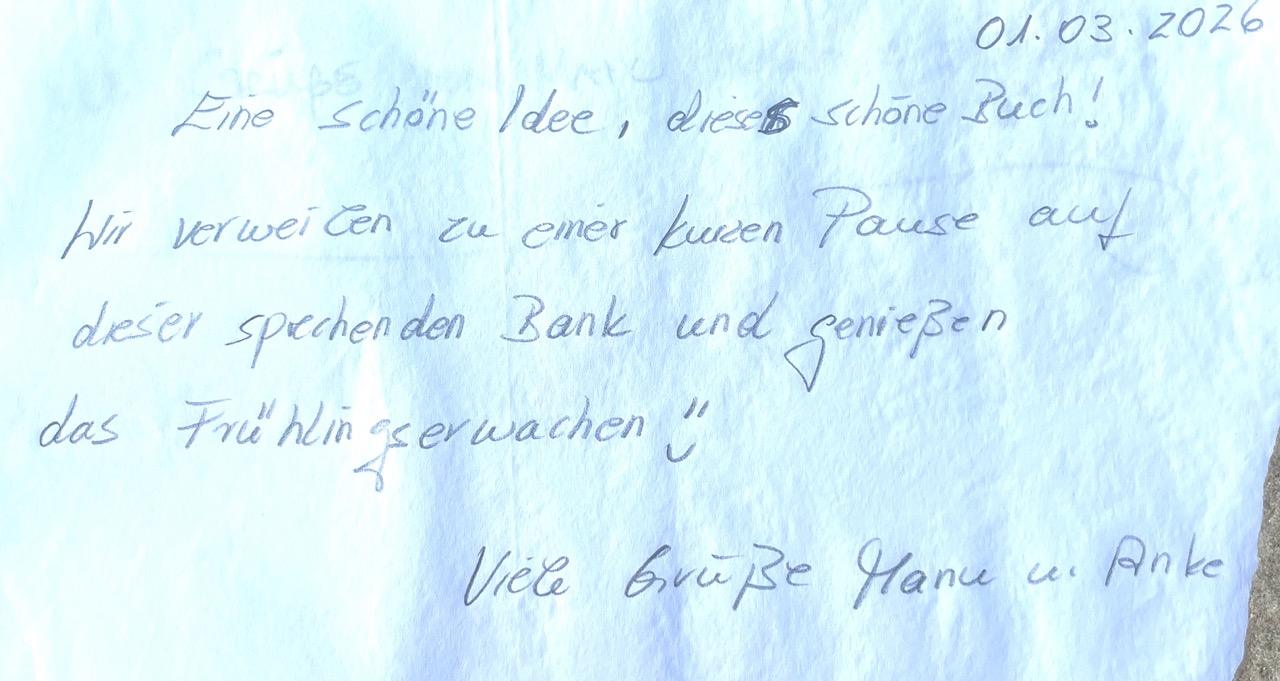 01.03.2026
Eine schöne Idee, dieses schöne Buch!
Wir verweilen zu einer kurzen Pause auf
dieser sprechenden Bank und genießen
das Frühlingserwachen
Viele Grüße Manu u. Anke